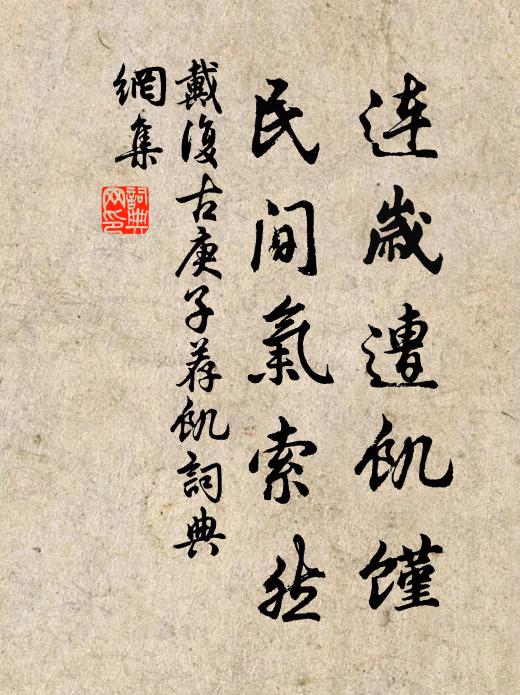 連歲遭飢饉
民間氣索然
戴復古庚子荐飢詞典
網集
詞典
网印